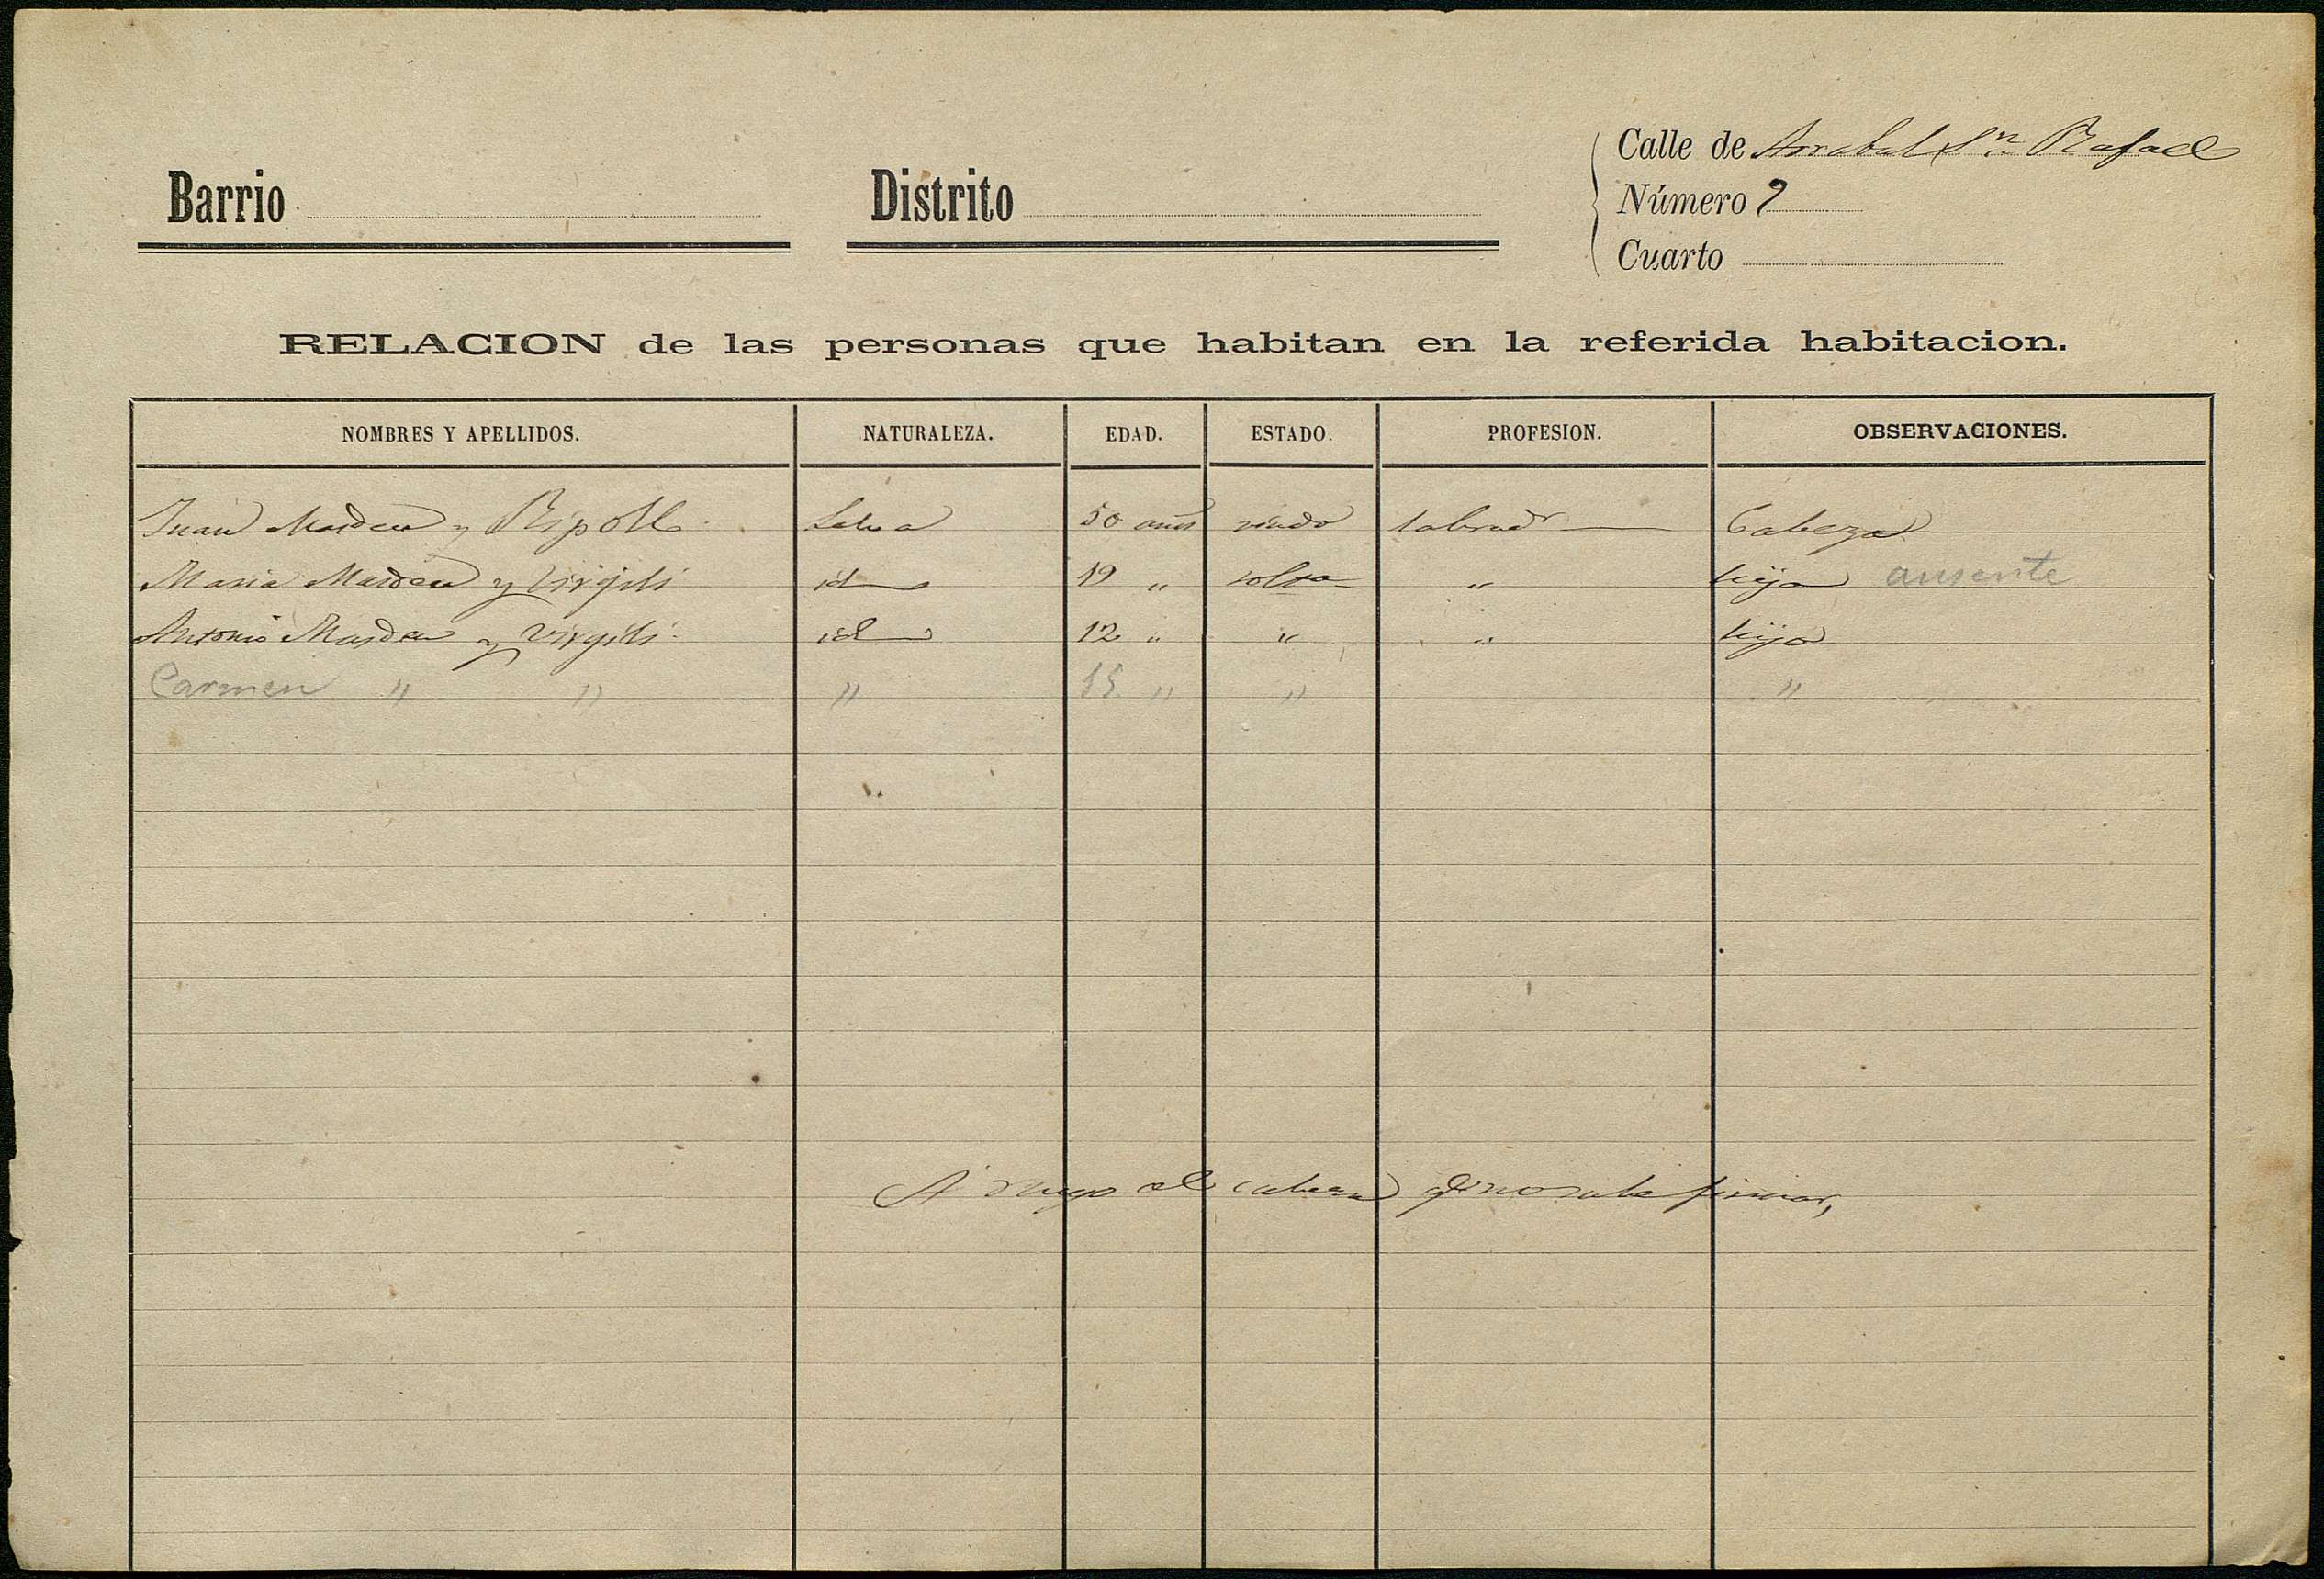 Calle de Arrabal Sn Rafael
Barrio Distrito Número 9
Cuarto
RELACION de las personas que habitan en la referida habitacion.
NOMBRES Y APELLIDOS. NATURALEZA. EDAD. ESTADO. PROFESION. OBSERVACIONES.
Juan Masdeu y Ripoll 50 años viudo labrador Cabeza
Maria Masdeu y Virgili id 19 " solta " hija ausente
Antonio Masdeu y Virgili id 12 " " " hijo
Carmen " " " 15 " " "
A ruego del cabeza qe no sabe firmar,